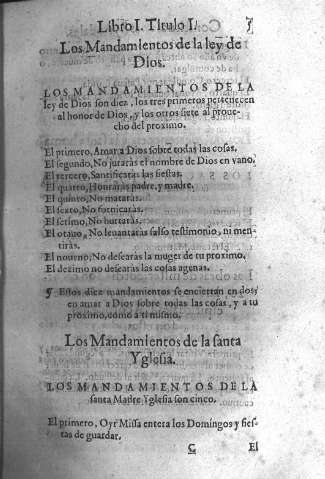 Libro I. Titulo I.
Los Mandamientos de la ley de
Dios.
LOS MANDAMIENTOS DE LA
ley de Dios son diez, los tres primeros pertenecen
al honor de Dios, y los otros siete al proue-
cho del proximo.
El primero, Amar a Dios sobre todas las cosas.
El segundo, No juraràs el nombre de Dios en vano.
El tercero, Santificaràs las fiestas.
El quarto, Honraràs padre, y madre.
El quinto, No mataràs.
El sexto, No fornicaràs.
El setimo, No hurtaràs.
El otauo, No leuantaràs falso testimonio, ni men-
tiràs.
El noueno, No desearàs la muger de tu proximo.
El dezimo no desearàs las cosas agenas.
¶ Estos diez mandamientos se encierran en dos,
en amar a Dios sobre todas las cosas, y a tu
proximo, como a ti mismo.
Los Mandamientos de la santa
Yglesia.
LOS MANDAMIENTOS DE LA
santa Madre Yglesia son cinco.
El primero, Oyr Missa entera los Domingos y fies-
tas de guardar.
C El